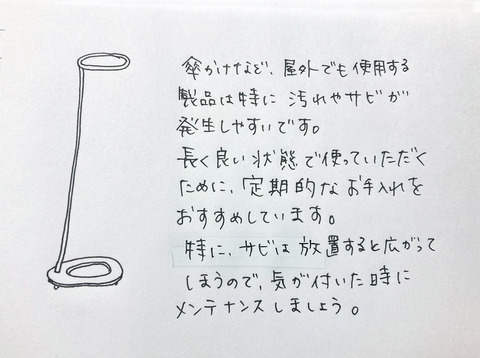 傘かけなど、屋外でも使用する
製品は特に汚れやサビが
発生しやすいです。
長く良い状態で使っていただく
ために、定期的なお手入れを
おすすめしています。
特に、サビは放置すると広がって
しまうので、気が付いた時に
メンテナンスしましょう。